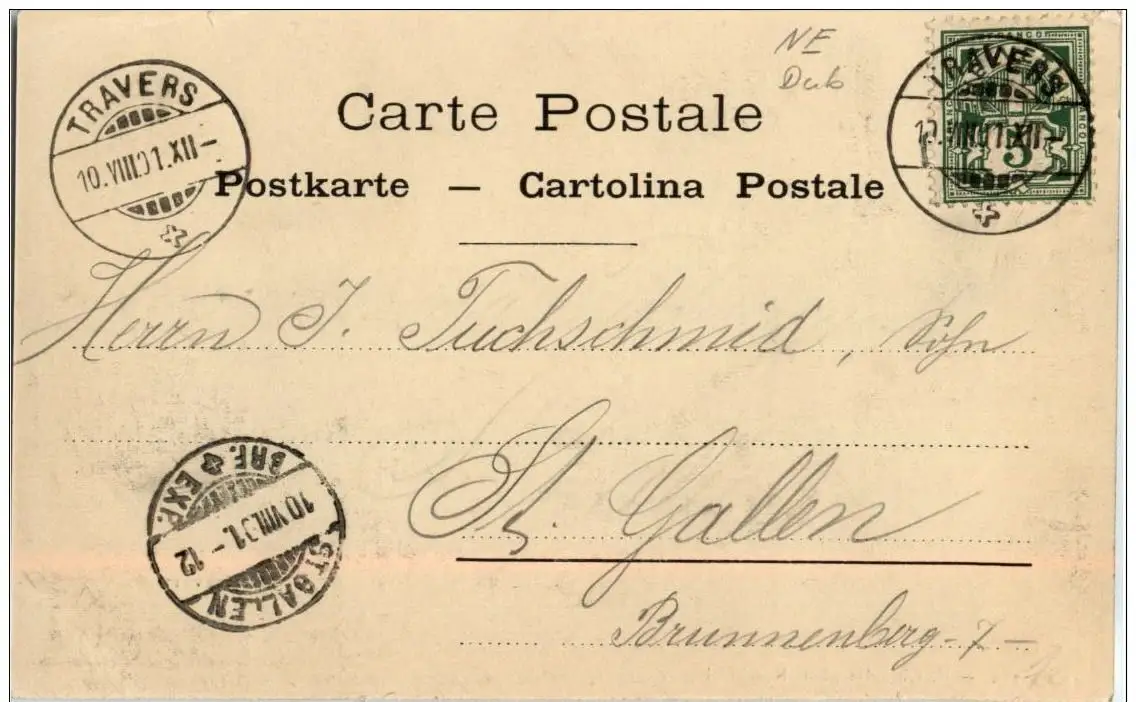 NE
Dub
TRAVERS
10.VIII.01.XII–
FRANCO
5
TRAVERS
10.VIII.01.XII–
Carte Postale
Postkarte — Cartolina Postale
Herrn J. Tuchschmid, Sohn
St. Gallen
Brunnenberg - 7 –
BRF. EXP.
10 VIII.01.– 12
ST. GALLEN